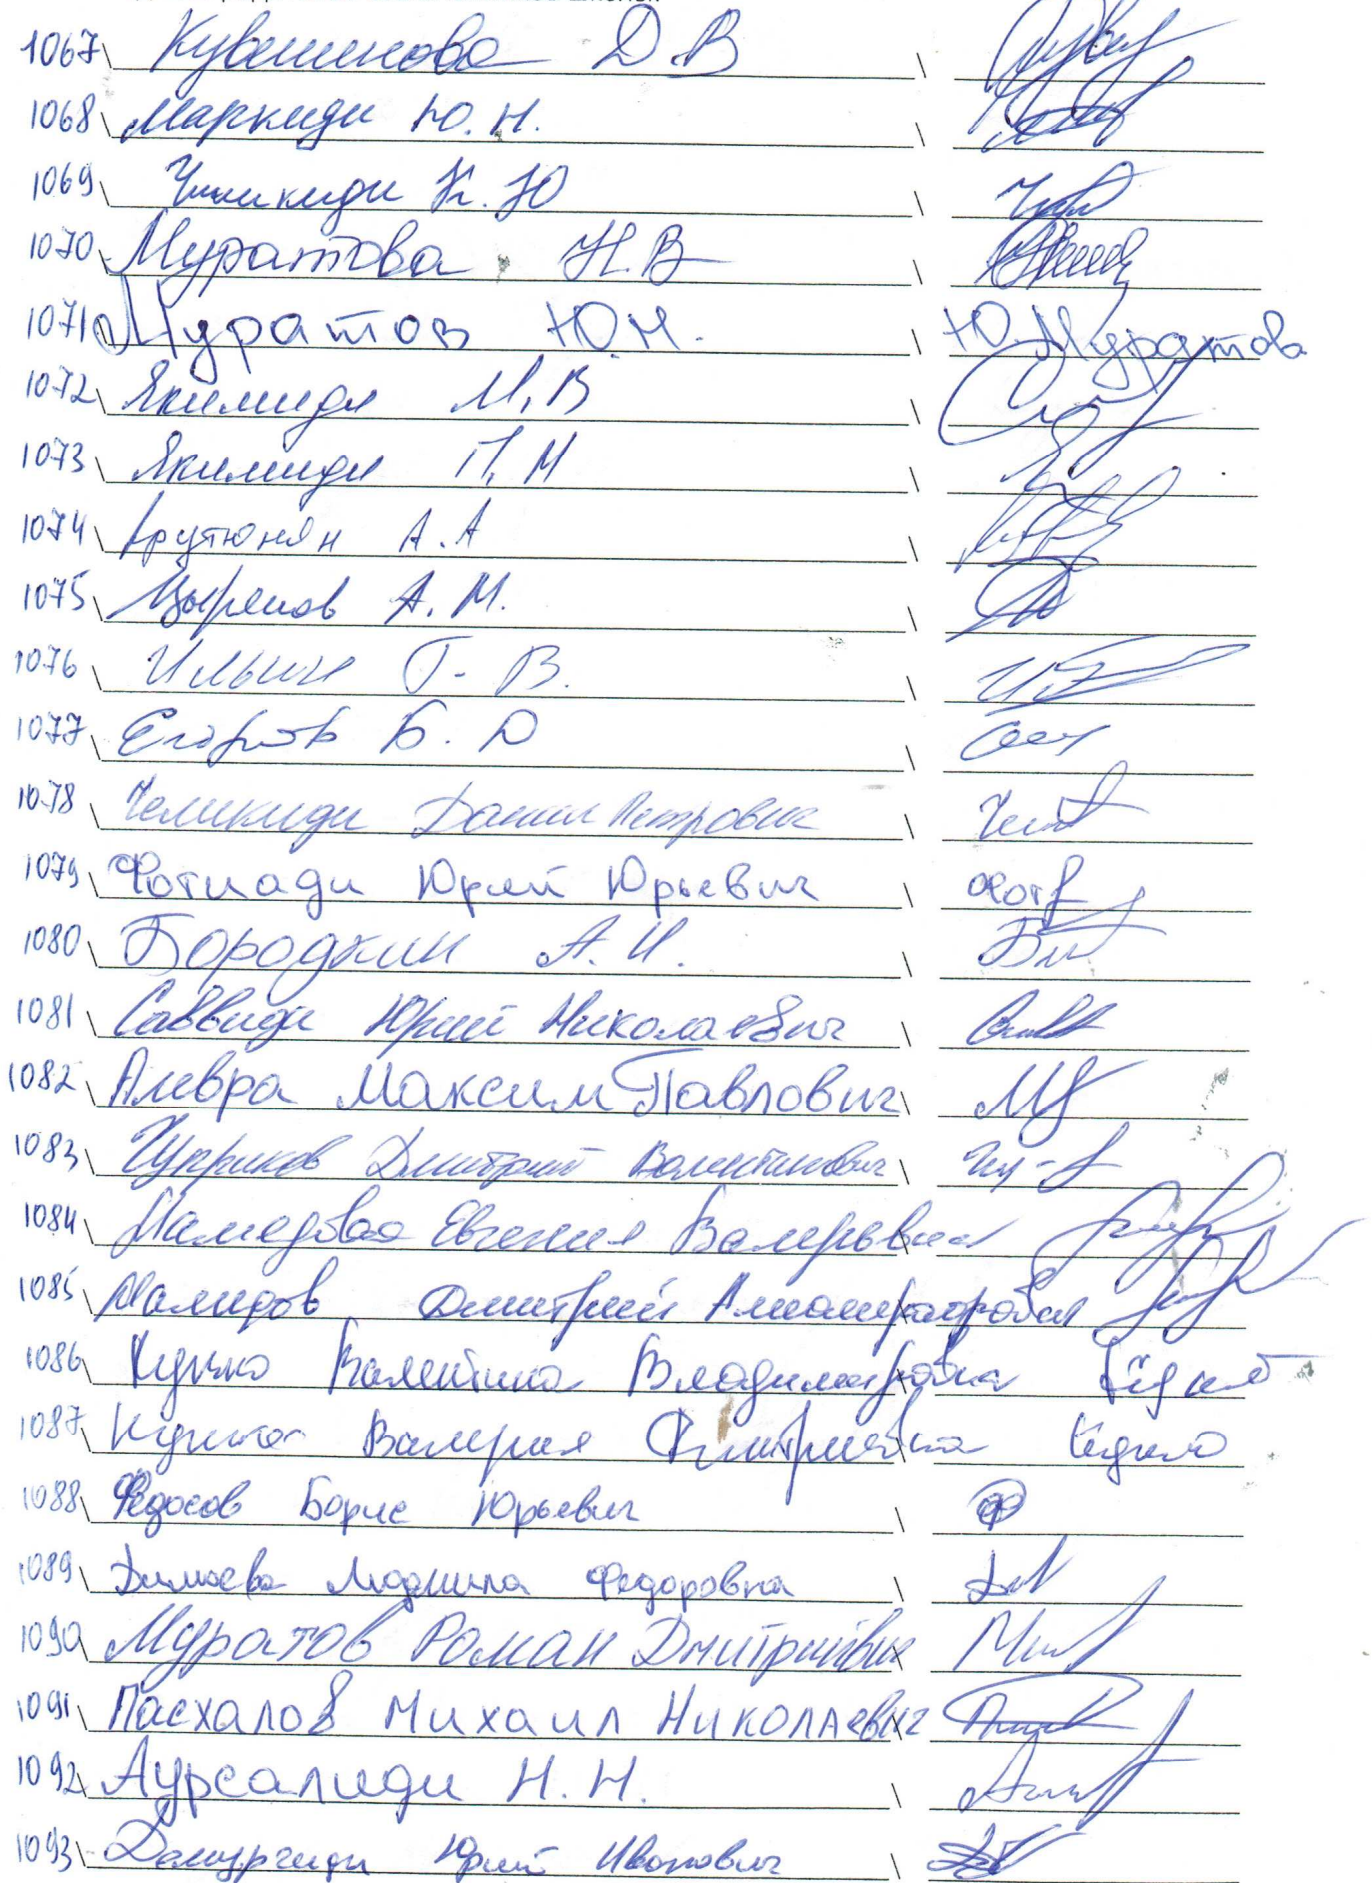 1067 Кувшинова Д.В
1068 Маркиди Ю.Н.
1069 К.Ю
1070 Муратова Н.В
1071 Муратов Ю.Н. Ю.Муратова
1072 Якимиди М.В
1073 Якимиди П.М
1074 Арутюнян А.А
1075 Цыренов А.М.
1076 Ильин Г.В.
1077 Егоров Б.Ю
1078 Челикиди Данил Петрович
1079 Фотиади Юрий Юрьевич Фот
1080 Бородкин А.И.
1081 Саввиди Юрий Николаевич
1082 Алевра Максим Павлович
1083 Чуприков Дмитрий Валентинович
1084 Мамедова Евгения Валерьевна
1085 Мамедов Дмитрий
1086 Куцко Валентина Владимировна
1087 Валерия Дмитриевна
1088 Федосов Борис Юрьевич
1089 Людмила Федоровна
1090 Муратов Роман Дмитриевич
1091 Пасхалов Михаил Николаевич
1092 Аурсалиди Н.Н.
1093 Юрий Иванович